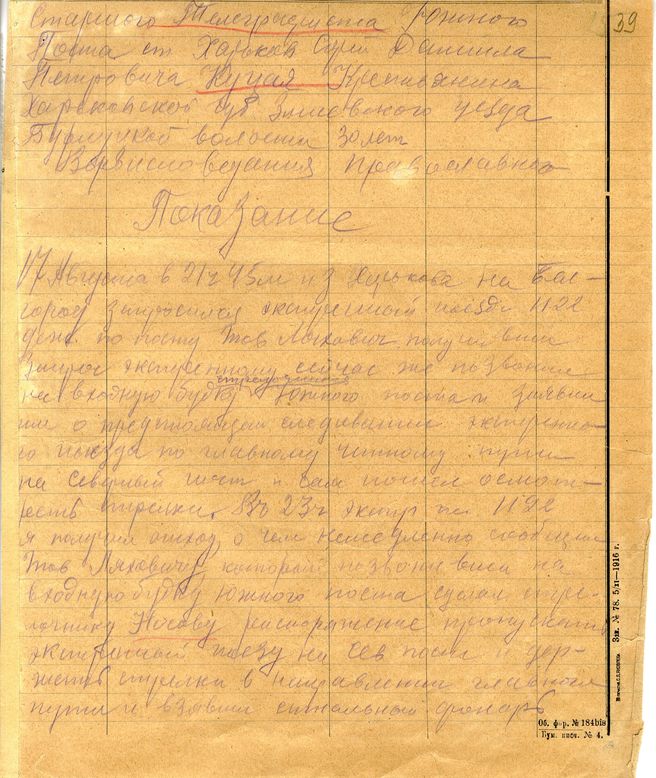 39
Старшого Телеграфиста Южного
Поста ст Харьков Сорт Даниила
Петровича Куцая Крестьянина
Харьковской губ Змиевского уезда
Бурлуцкой волости 30 лет
Вероисповедания Православного
Показание
17 Августа в 21ч 45м из Харькова на Бел-
город запросился экстренный поезд 1122
по посту Тов Ляхович получивши
запрос экстренному сейчас же позвонил
на входную будку Южного поста и заявил
о предстоящем следовании экстренно-
го поезда по главному четному пути
на Северный пост и сам пошел осмот-
реть стрелки. В 23ч экстр
я получил отход, о чем немедленно сообщил
Тов Ляховичу, который позвонивши на
входную будку Южного поста сделал стре-
лочнику Носову распоряжение пропускать
экстренный поезд на Сев пост и дер-
жать стрелки в направлении главного
пути и взявши сигнальный фонарь
Об. фор. № 184bis
Бум. писч. № 4.
Зак. № 78. 5/ІІ—1916 г.